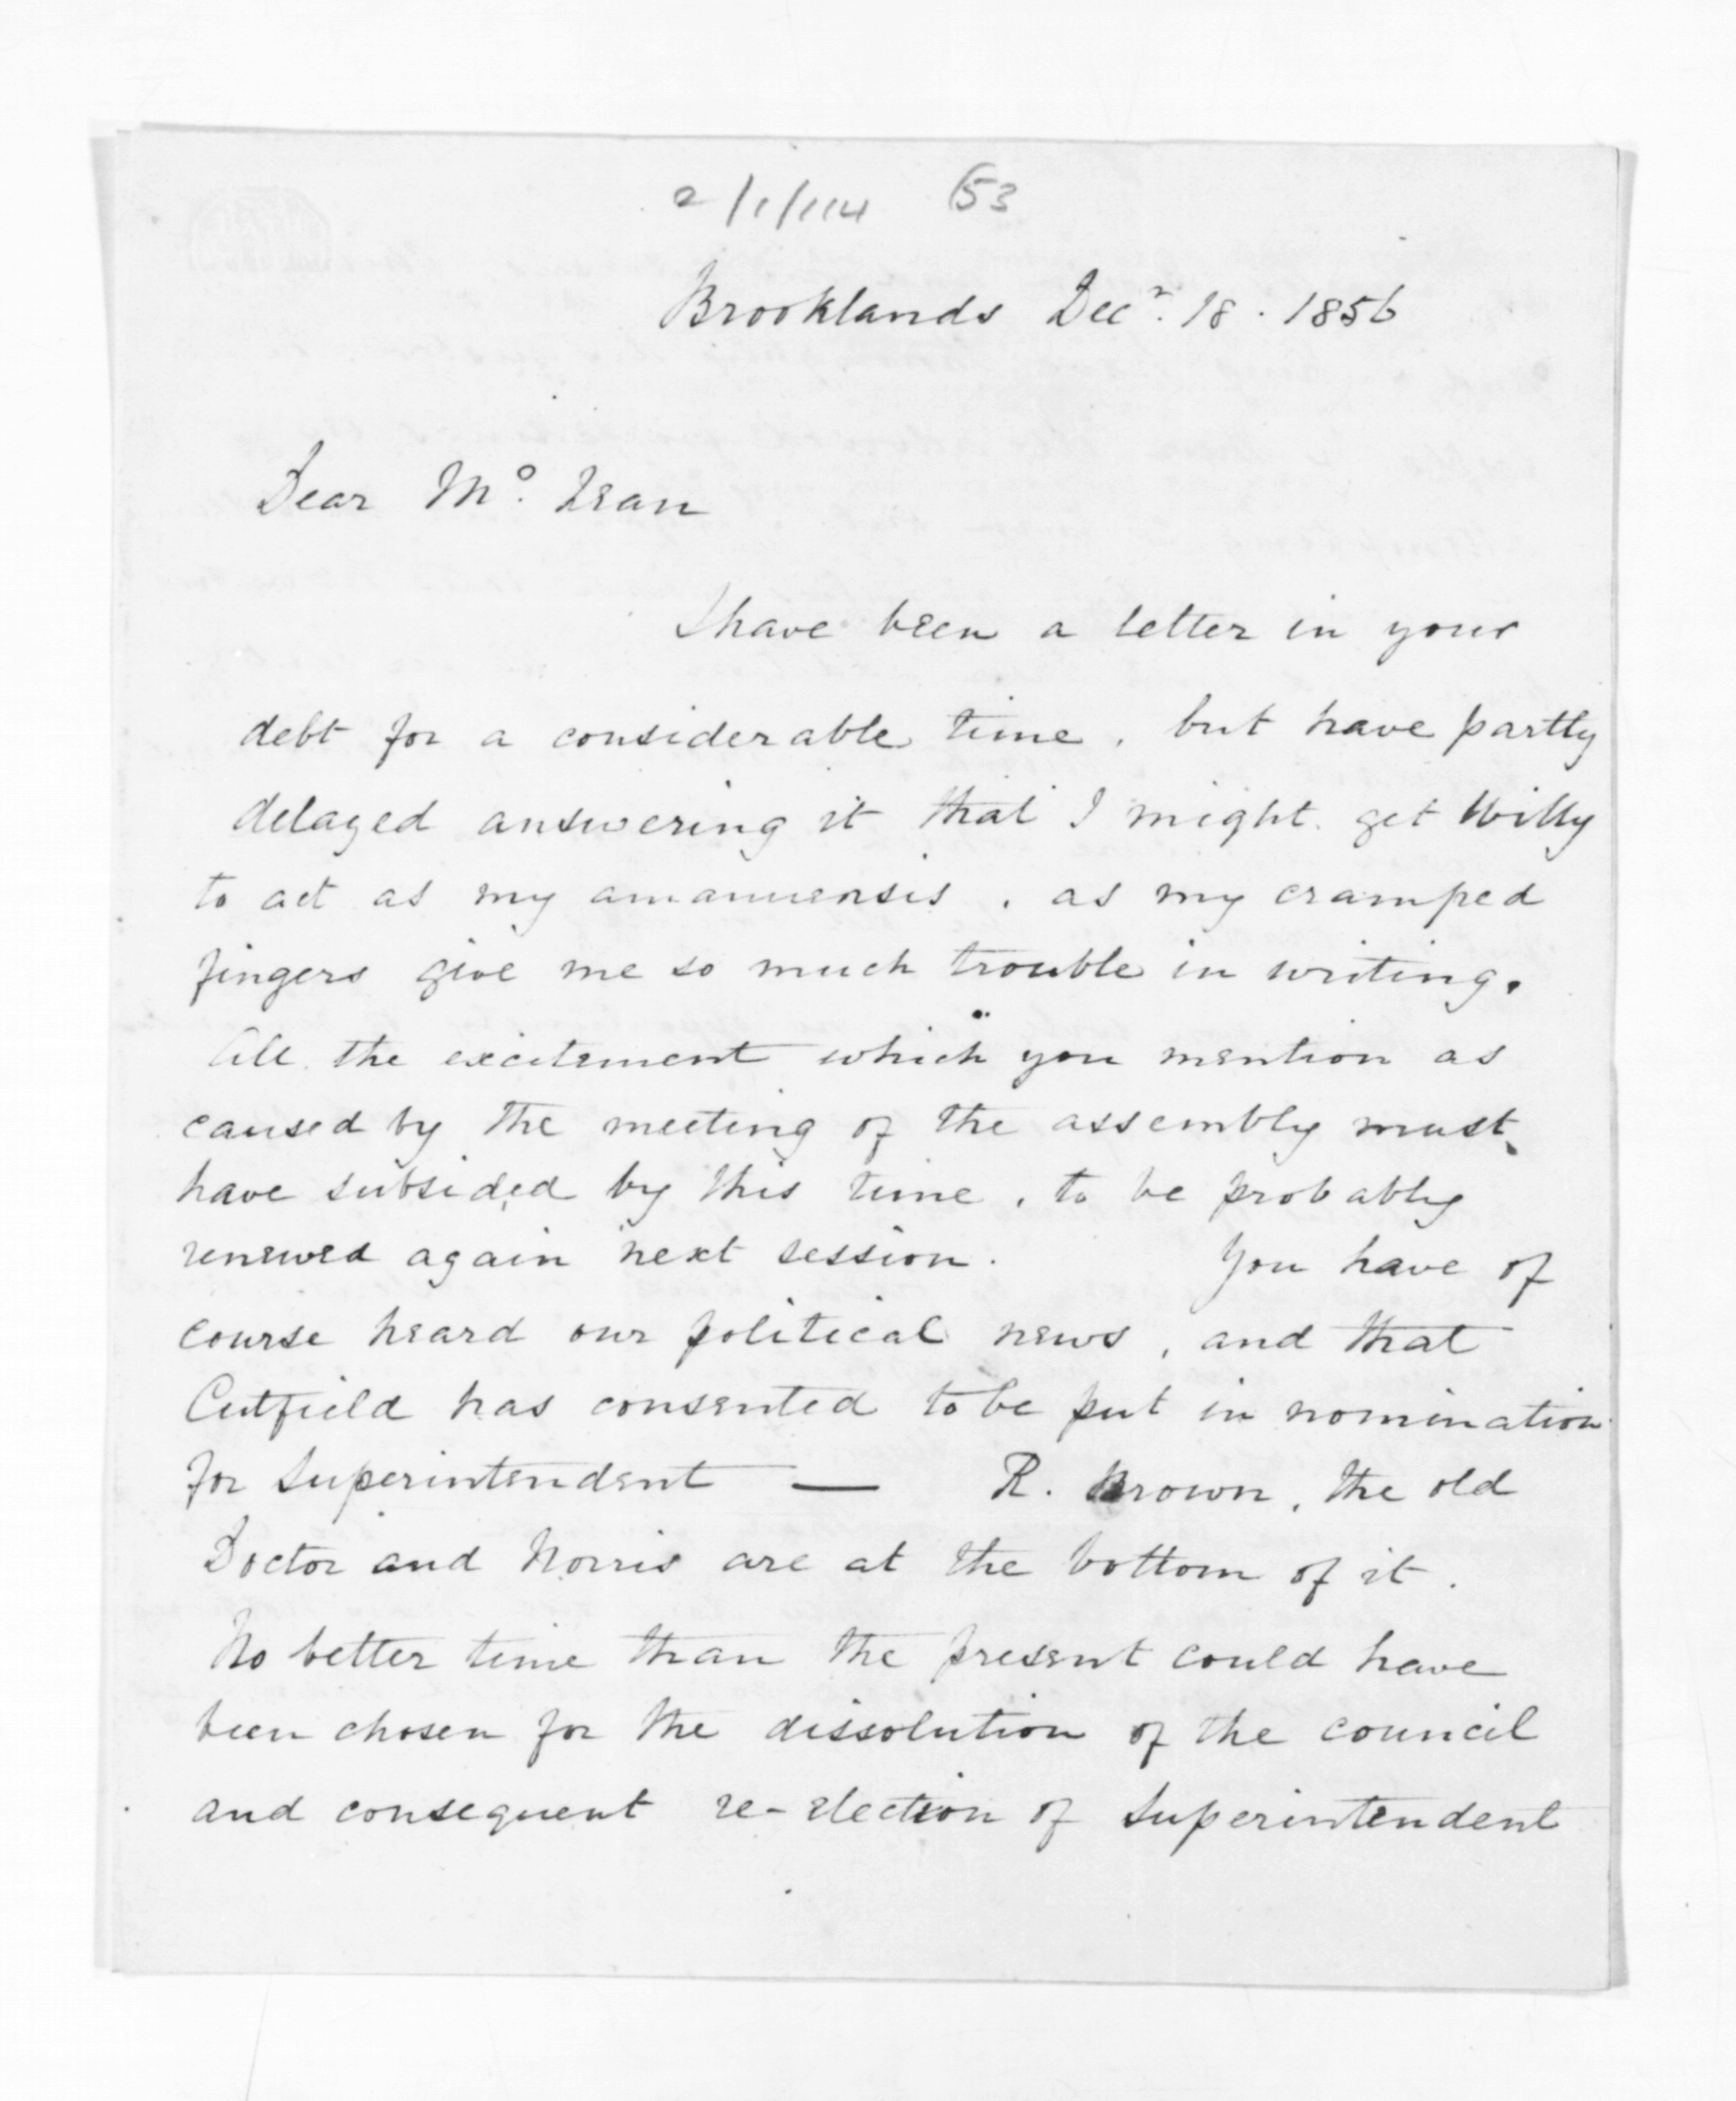 2/1/114 (53
Brooklands Decr. 18. 1856
Dear Mc. Lean
I have been a letter in your
debt for a considerable time, but have partly
delayed answering it that I might get Willy
to act as my amanuensis, as my cramped
fingers give me so much trouble in writing.
All the excitement which you mention as
caused by the meeting of the assembly must
have subsided by this time, to be probably
renewed again next session. You have of
course heard our political news, and that
Cutfield has consented to be put in nomination
for Superintendent — R. Brown, the old
Doctor and Norris are at the bottom of it.
No better time than the present could have
been chosen for the dissolution of the council
and consequent re-election of Superintendent